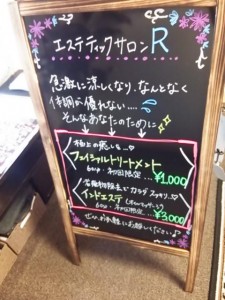 エステティックサロン R
急激に涼しくなり、なんとなく
体調が優れない…
そんなあなたのために
極上の癒しを…♡
フェイシャルトリートメント
60分・初回限定…¥1,000
老廃物除去でカラダスッキリ…♡
インドエステ
60分・初回限定…¥3,000
ぜひ、お気軽にお越しください♪